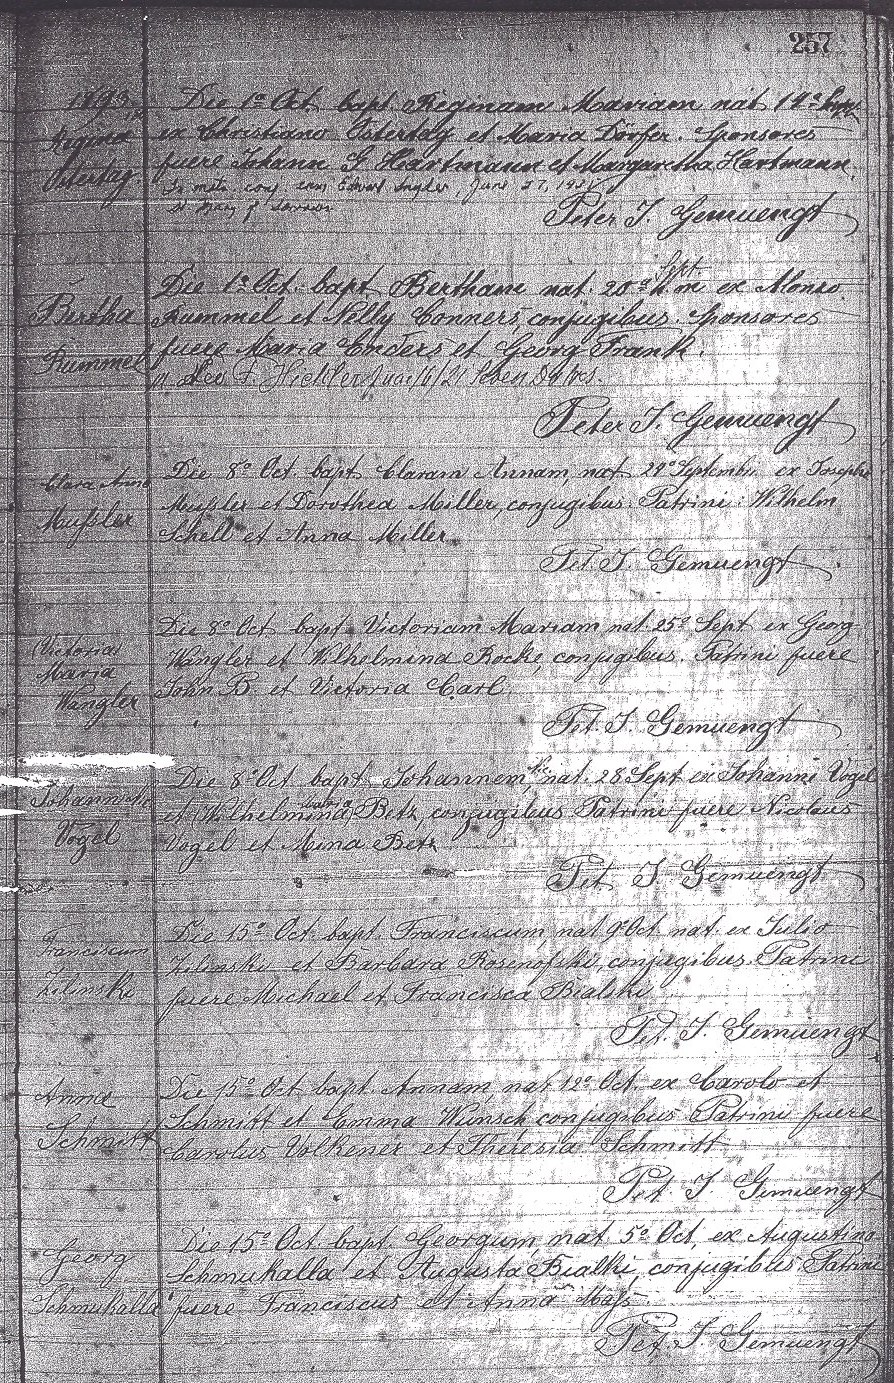 257
1893.
Regina
Ostertag.
Die 1º Oct. bapt. Reginam Mariam nat. 17º Sept.
ex Christiano Ostertag et Maria Dörfer. Sponsores
fuere Johann G. Hartmann et Margaretha Hartmann.
In mat. conj. cum Edward Angler, June 27,
St Mary of Sorrows
Peter J. Gemuengt
Bertha
Rummel
Die 1º Oct. bapt. Bertham nat. 20º Sept. ex Alonso
Rummel et Nelly Conners, conjugibus. Sponsores
fuere Maria Enders et Georg Frank.
Leo F. Hickler June 16/21 Seven Dolors.
Peter J. Gemuengt
Clara Anna
Mußler
Die 8º Oct. bapt. Claram Annam, nat. 29º Septembr. ex Josepho
Mußler et Dorothea Miller, conjugibus. Patrini: Wilhelm
Schell et Anna Miller.
Pet. J. Gemuengt
(Victoria)
Maria
Wangler
Die 8º Oct. bapt. Victoriam Mariam nat. 25º Sept ex Georg
Wangler et Wilhelmina Rocke, conjugibus. Patrini fuere
John B. et Victoria Carl.
Pet. J. Gemuengt
Johann
Vogel
Die 8º Oct bapt. Johannem, nat. 28 Sept ex Johanni Vogel
et (Wilhelmina) Betz, conjugibus Patrini fuere Nicolaus
Vogel et Mina Betz
Pet. J. Gemuengt
Franciscum
Zilinski
Die 15º Oct bapt. Franciscum, nat 9º Oct. nat. ex Julio
Zilinski et Barbara Rosenofski, conjugibus. Patrini
fuere Michael et Francisca Bialski.
Pet. J. Gemuengt
Anna
Schmitt
Die 15º Oct bapt. Annam, nat. 12º Oct. ex Carolo et
Schmitt et Emma Wunsch conjugibus Patrini fuere
Carolus Volkener et Theresia Schmitt
Pet. J. Gemuengt
Georg
Schmukalla
Die 15º Oct. bapt. Georgum, nat. 5º Oct, ex Augustino
Schmukalla et Augusta Bialki, conjugibus Patrini
fuere Franciscus et Anna Maß.
Pet. J. Gemuengt